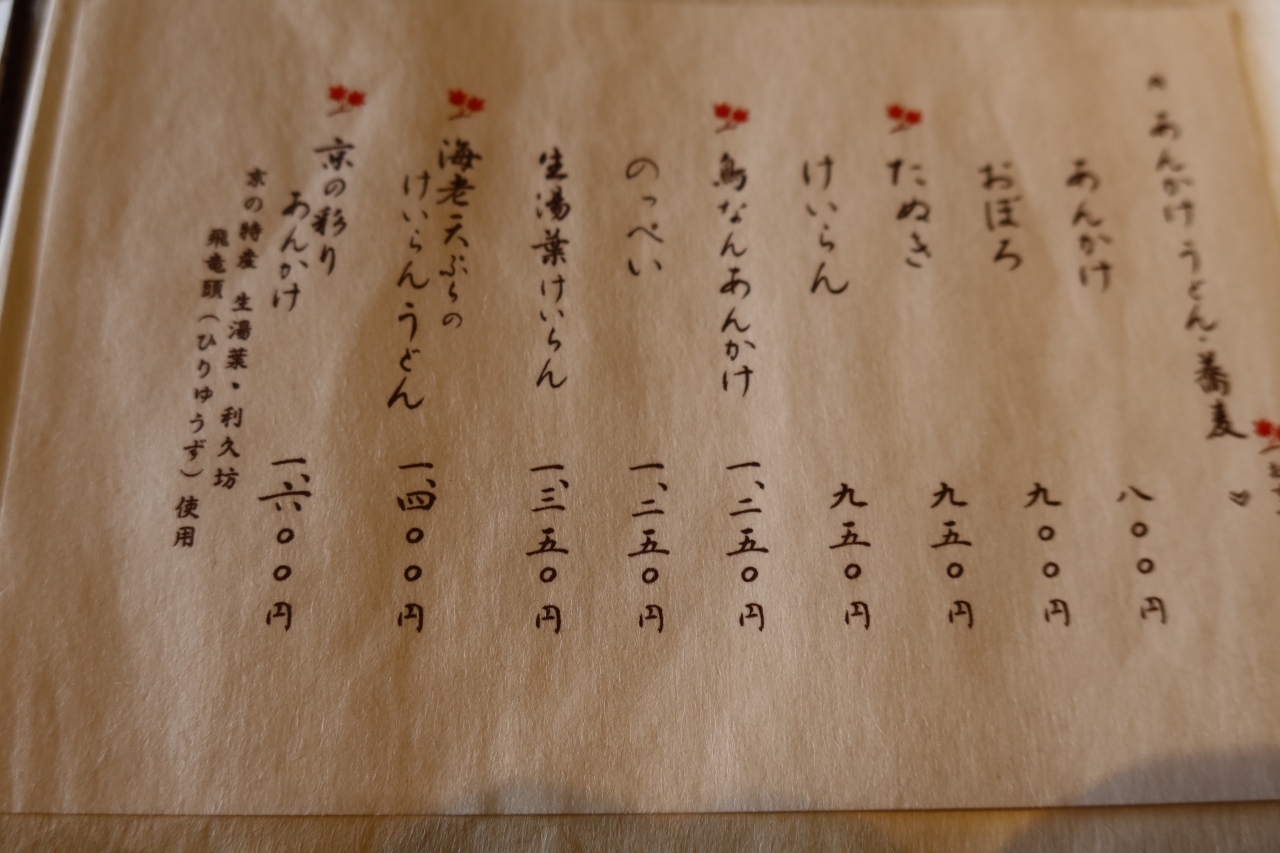 あんかけうどん・蕎麦
あんかけ 八〇〇円
おぼろ 九〇〇円
たぬき 九五〇円
けいらん 九五〇円
鳥なんあんかけ 一、二五〇円
のっぺい 一、二五〇円
生湯葉けいらん 一、三五〇円
海老天ぷらの
けいらんうどん 一、四〇〇円
京の彩り
あんかけ 一、六〇〇円
京の特産 生湯葉・利久坊
飛竜頭(ひりゅうず)使用